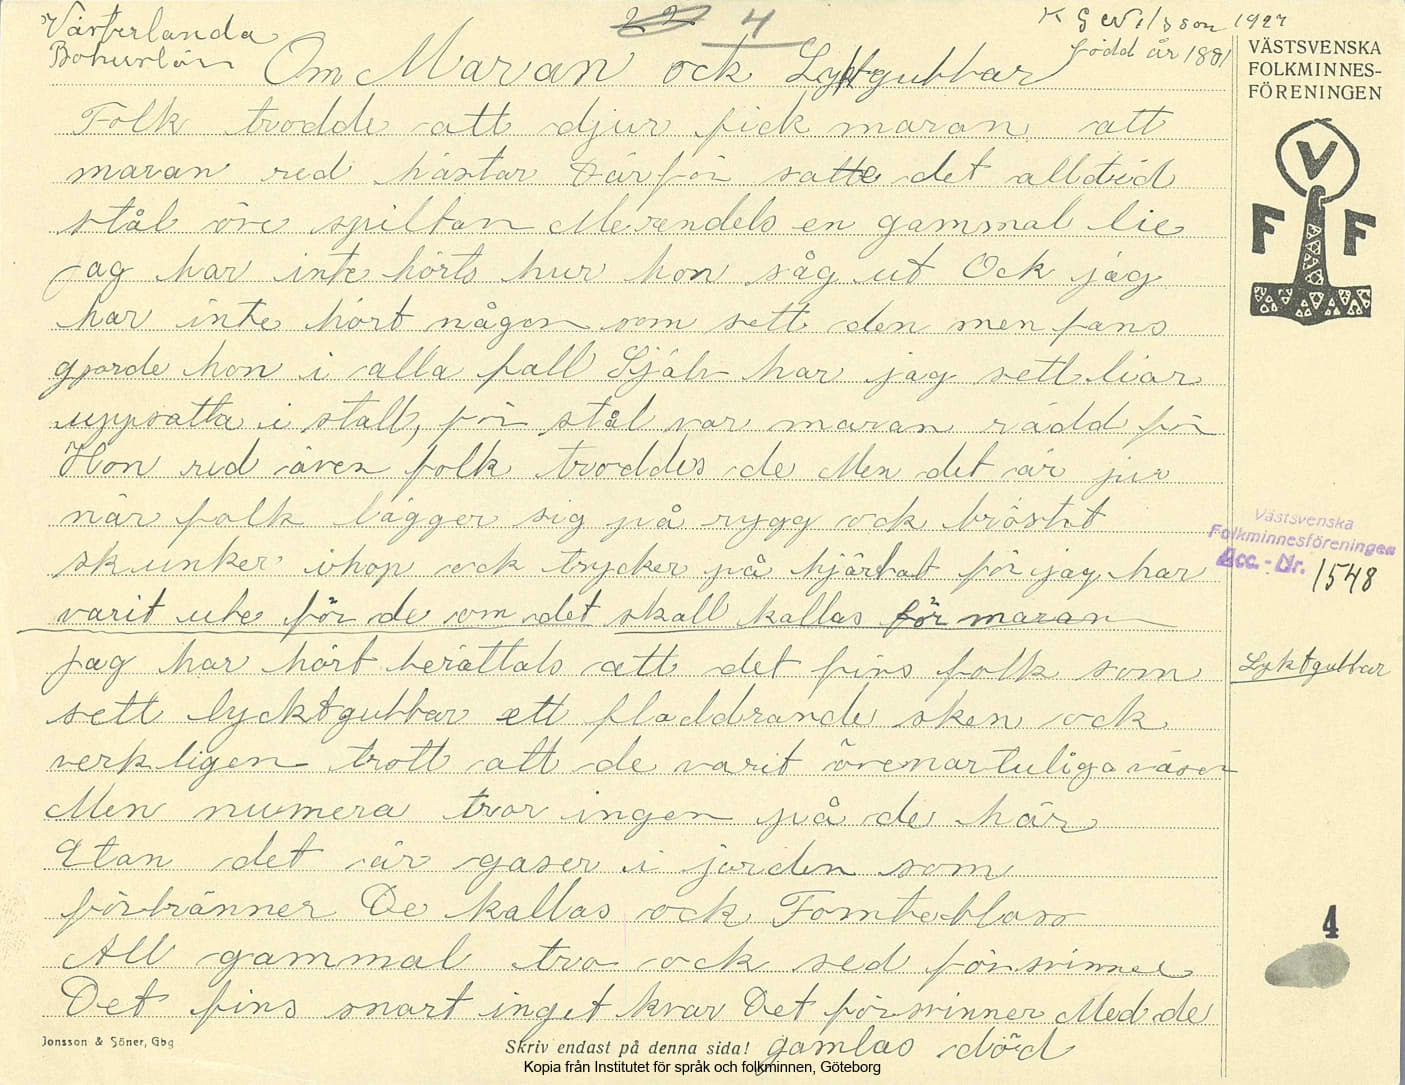 Västerlanda
Bohuslän
22 4
K G W Nilsson 1927
född år 1881
VÄSTSVENSKA
FOLKMINNES-
FÖRENINGEN
Om Maran ock Lyktgubbar
Folk trodde att djur fick maran att
maran red hästar Därför satte det alltid
stål öve spiltan Merendels en gammal lie
jag har inte hörts hur hon såg ut Ock jag
har inte hört någon som sett den men fans
gjorde hon i alla fall Själv har jag sett liar
uppsatta i stall, för stål var maran rädd för
Hon red även folk troddes de Men det är ju
när folk lägger sig på rygg ock bröstet
skunker ihop ock trycker på hjärtat för jag har
varit ute för de om det skall kallas för maran
jag har hört berättals att det fins folk som
sett lycktgubbar ett fladdrande sken ock
verkligen trott att de varit övenartuliga väsen
Men numera tror ingen på de här
Utan det är gaser i jorden som
förbränner De kallas ock Tomtebloss
All gammal tro ock sed försvinner
Det fins snart inget kvar Det försvinner Med de
gamlas död
V
F F
Västsvenska
Folkminnesföreningen
Acc.-Nr. 1548
Lyktgubbar
4
Jonsson & Söner, Gbg
Skriv endast på denna sida!
Kopia från Institutet för språk och folkminnen, Göteborg